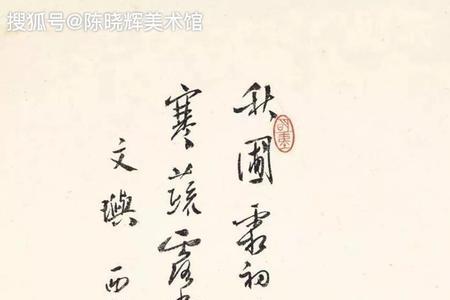 搜狐号@陈晓辉美术馆
秋圃霜初
寒蔬露
文璵 西